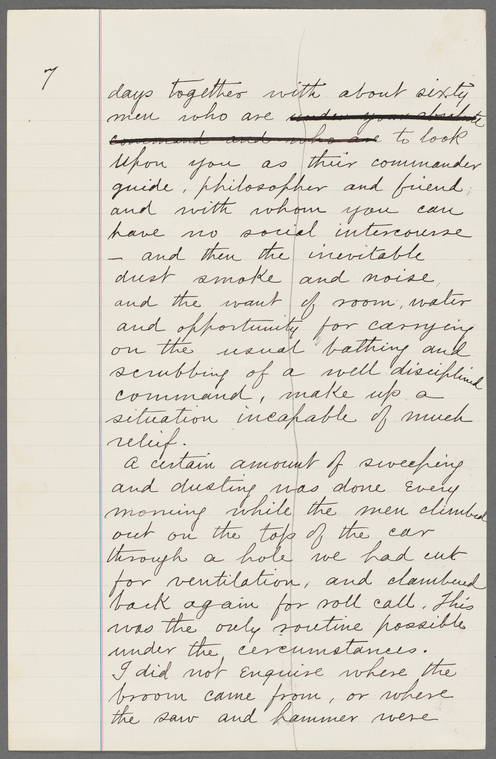 7
days together with about sixty
men who are under your absolute
command and who are to look
upon you as their commander
guide, philosopher and friend,
and with whom you can
have no social intercourse
— and then the inevitable
dust smoke and noise,
and the want of room, water
and opportunity for carrying
on the usual bathing and
scrubbing of a well disciplined
command, make up a
situation incapable of much
relief.
A certain amount of sweeping
and dusting was done every
morning while the men climbed
out on the top of the car
through a hole we had cut
for ventilation, and clambered
back again for roll call. This
was the only routine possible
under the cercumstances.
I did not enquire where the
broom came from, or where
the saw and hammer were